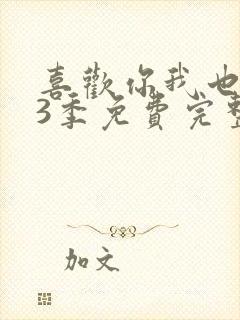 喜歡你我也
3季免費完整
加文